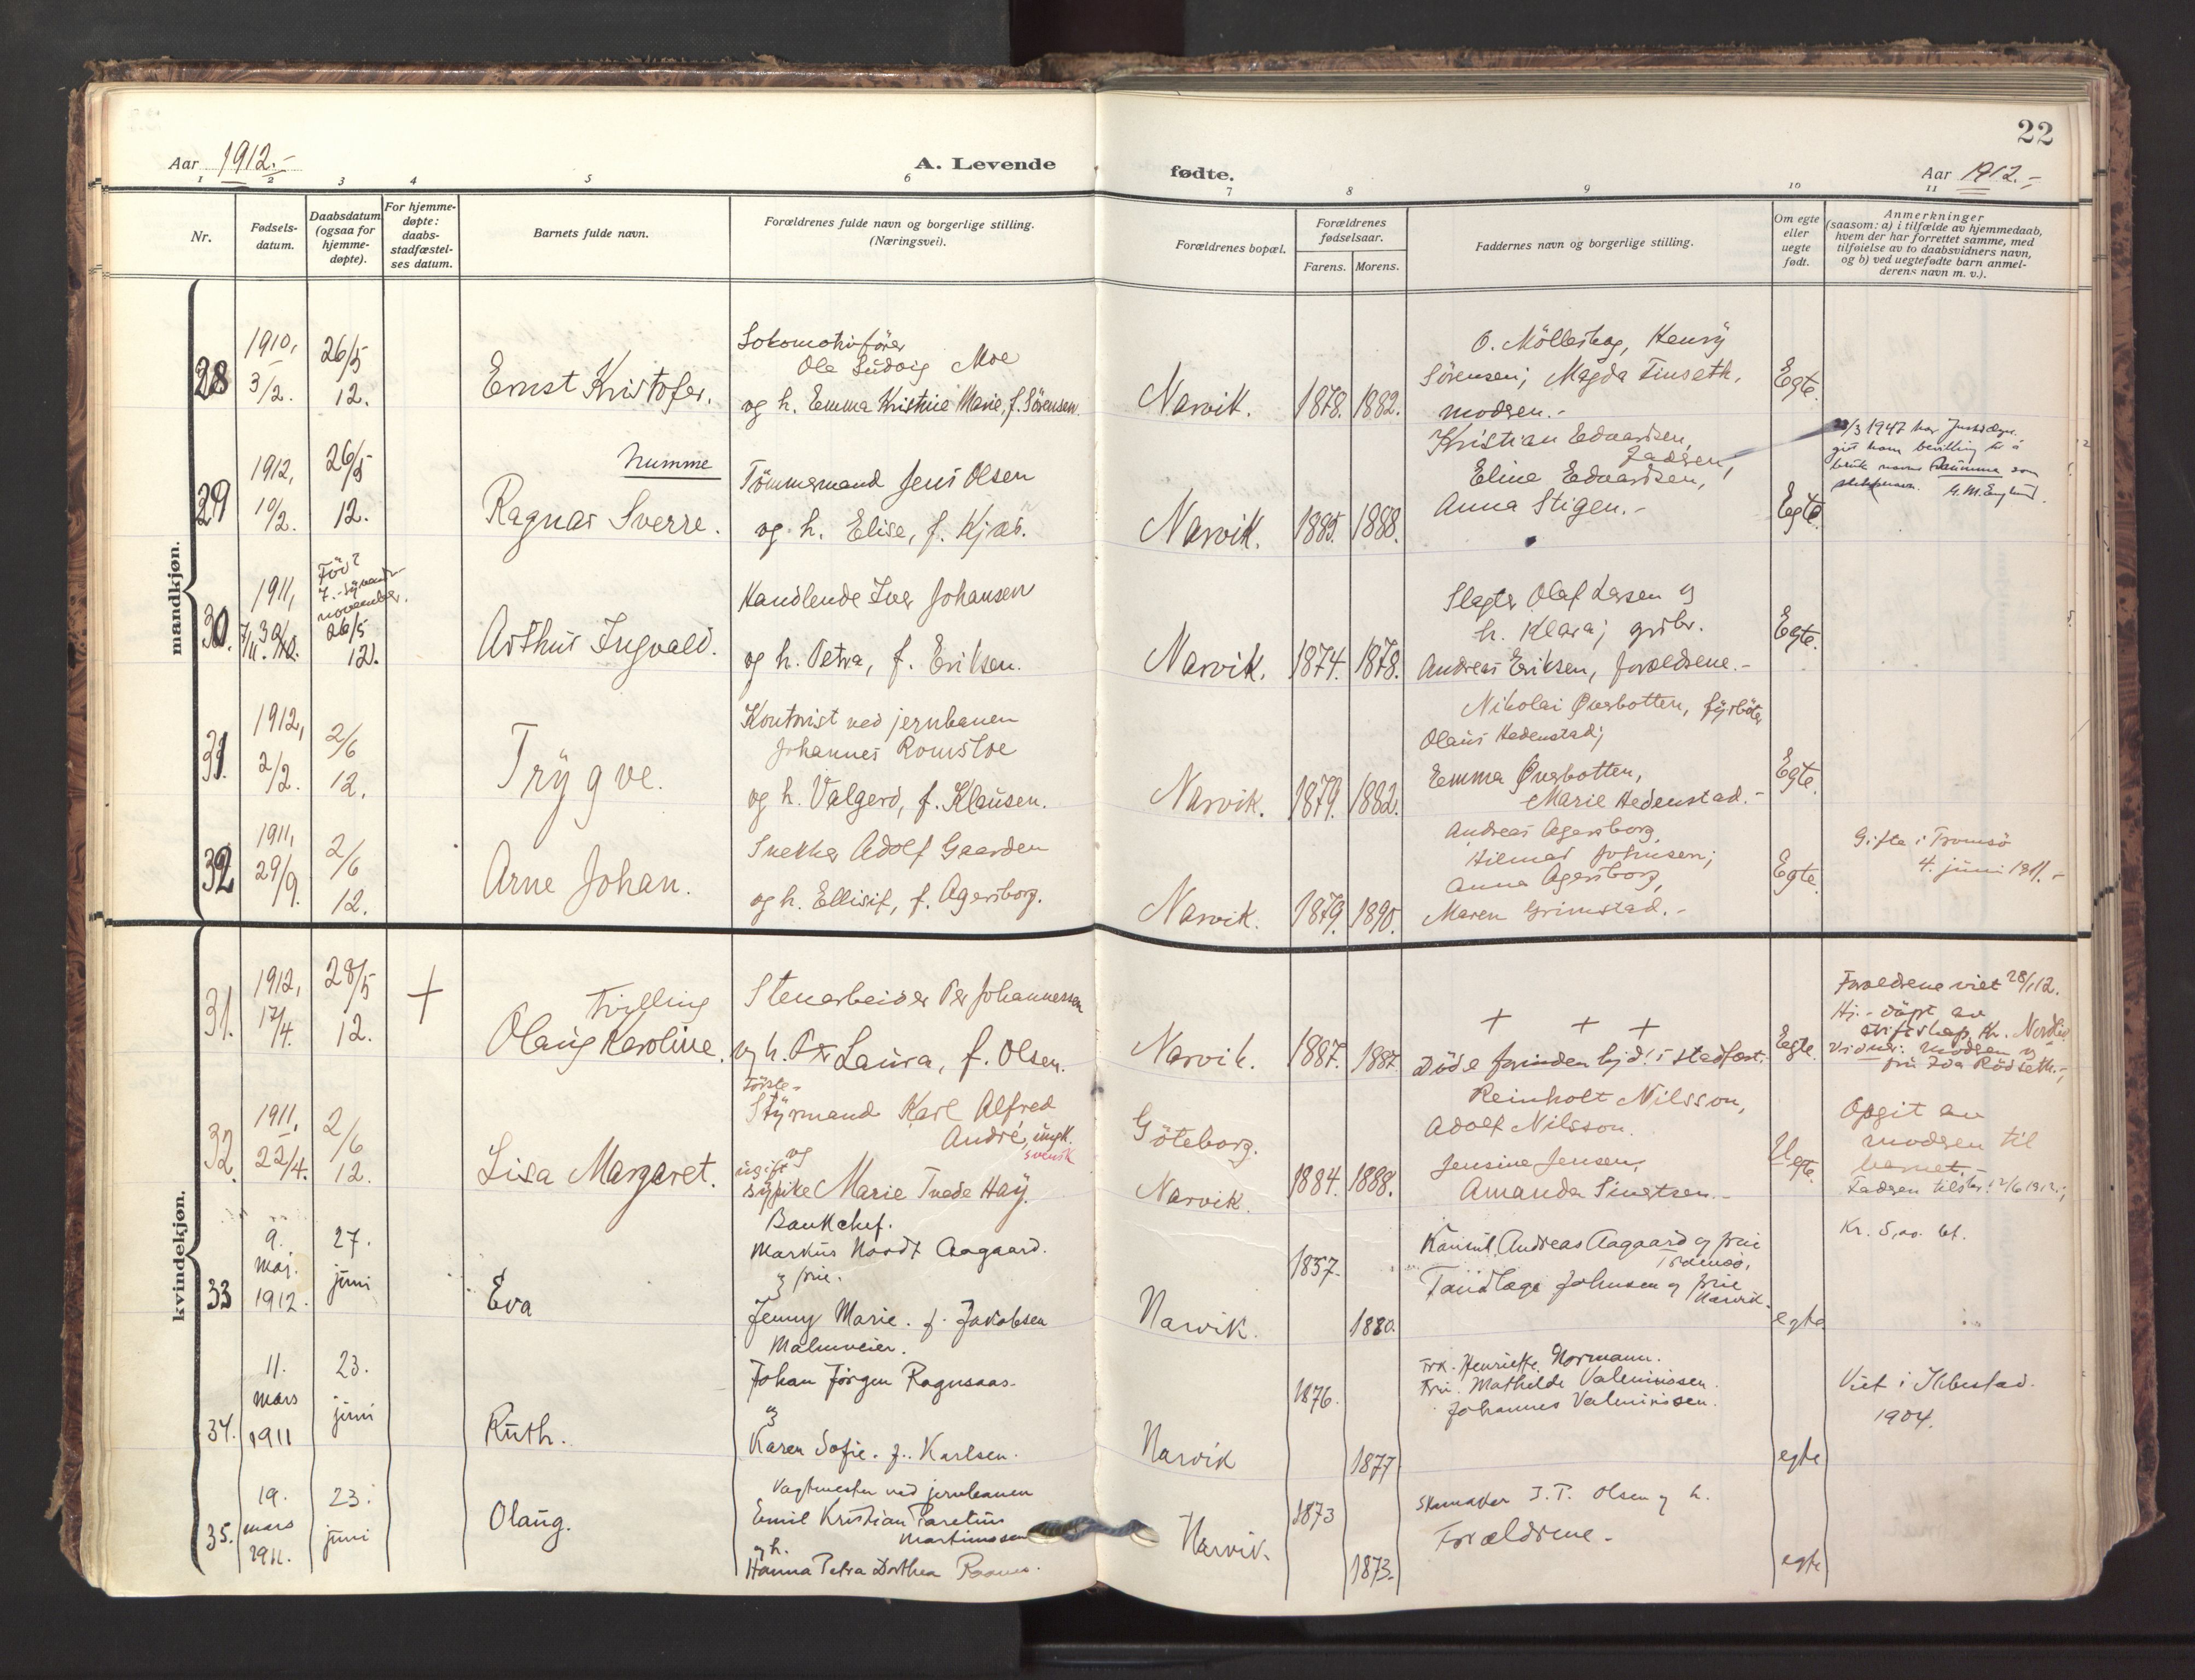 22
Aar 1912.-
A. Levende
fødte.
Aar 1912.-
1 2 3 4 5 6 7 8 9 10 11
Nr.
Fødsels-
datum.
Daabsdatum
(ogsaa for
hjemme-
døpte).
For hjemme-
døpte:
daabs-
stadfæstel-
ses datum.
Barnets fulde navn.
Forældrenes fulde navn og borgerlige stilling.
(Næringsvei).
Forældrenes bopæl.
Forældrenes
fødselsaar.
Farens. Morens.
Faddernes navn og borgerlige stilling.
Om egte
eller
uegte
født.
Anmerkninger
(saasom: a) i tilfælde av hjemmedaab,
hvem der har forrettet samme, med
tilføielse av to daabsvidners navn,
og b) ved uegtefødte barn anmel-
derens navn m. v.).
mandkjøn.
28
1910,
3/2.
26/5
12.
Ernst Kristofer.
Lokomotivfører
Ole Ludvig Moe
og h. Emma Kristine Marie, f. Sörensen.
Narvik.
1878. 1882.
O. Möllerhag, Henry
Sörensen; Magda Finseth,
modren.-
Egte.
29
1912,
10/2.
26/5
12.
Numme
Ragnar Sverre.
Tömmermand Jens Olsen
og h. Elise, f. Kjær.
Narvik.
1885. 1888.
Kristian Edvardsen,
Fadren,
Eline Edvardsen,
Anna Stigen.-
Egte.
23/3 1947 har Justisdep.
gitt ham bevilling til å
bruke navnet Numme som
slektsnavn. G. M. Englund.
30.
1911,
7/11. 30/10.
Föd?
7. november.
26/5
12.
Arthur Ingvald.
Handlende Iver Johansen
og h. Petra, f. Eriksen.
Narvik.
1874. 1878.
Slagter Olaf Larsen og
h. Klara; grdbr.
Andreas Eriksen, forældrene.-
Egte.
31.
1912,
2/2.
2/6
12.
Trygve.
Kontorist ved jernbanen
Johannes Romsloe
og h. Valgerd, f. Klausen.
Narvik.
1879. 1882.
Nikolai Øverbotten, fyrböter
Olaus Hedenstad;
Emma Øverbotten,
Marie Hedenstad.-
Egte.
32
1911,
29/9.
2/6
12.
Arne Johan.
Snekker Adolf Gaarden
og h. Ellisif, f. Agersborg.
Narvik.
1879. 1890.
Andreas Agersborg,
Hilmar Johnsen;
Anna Agersborg,
Maren Grimstad.-
Egte.
Gifte i Tromsö
4. juni 1911.-
kvindekjøn.
31.
1912,
17/4.
28/5
12.
+
Tvilling
Olaug Karoline.
Stenarbeider Per Johannessen
og h. Laura, f. Olsen.
Narvik.
1887. 1887.
+ + +
Døde forinden hjd. i stadfæst.
Egte.
Foreldrene viet 28/1 12.
Hj.-döpt av
stiftskap. Kr. Nordlid.
Vidner: modren og
fru Ida Rödseth.-
32.
1911,
22/4.
2/6
12.
Lisa Margaret.
Förste-
Styrmand Karl Alfred
André, ungk.
svensk
og
ugift
sypike Marie Tvede Hay.
Göteborg.
Narvik.
1884. 1888.
Reinholt Nilsson,
Adolf Nilsson.
Jensine Jensen,
Amanda Sivertsen.-
Uegte.
Opgit av
modren til
barnet.-
Fadren tilskr. 12/6 1912.;
33
9.
maj.
1912.
27.
juni
Eva
Bankchef.
Markus Hoordt Aagaard.
og frue.
Jenny Marie. f. Jakobsen
Narvik.
1857.
1880.
Konsul Andreas Aagaard og frue
Tromsö,
Tandlæge Johnsen og frue
Narvik.
egte
Kr. 5,00 bt.
34.
11.
mars
1911
23.
juni
Ruth.
Malmveier.
Johan Jörgen Ragnsaas.
og
Karen Sofie. f. Karlsen.
Narvik
1876.
1877
Frk. Henriette Normann.
Fru. Mathilde Valeninssen.
Johannes Valeninssen.
egte
Viet i Ibbestad.
1904.
35.
19.
mars
1911.
23.
juni
Olaug.
Vagtmester ved jernbanen
Emil Kristian Paretius
Martinussen
og h.
Hanna Petra Dorthea
Narvik.
1873
1873.
Skomaker J. T. Olsen og h.
Forældrene.
egte